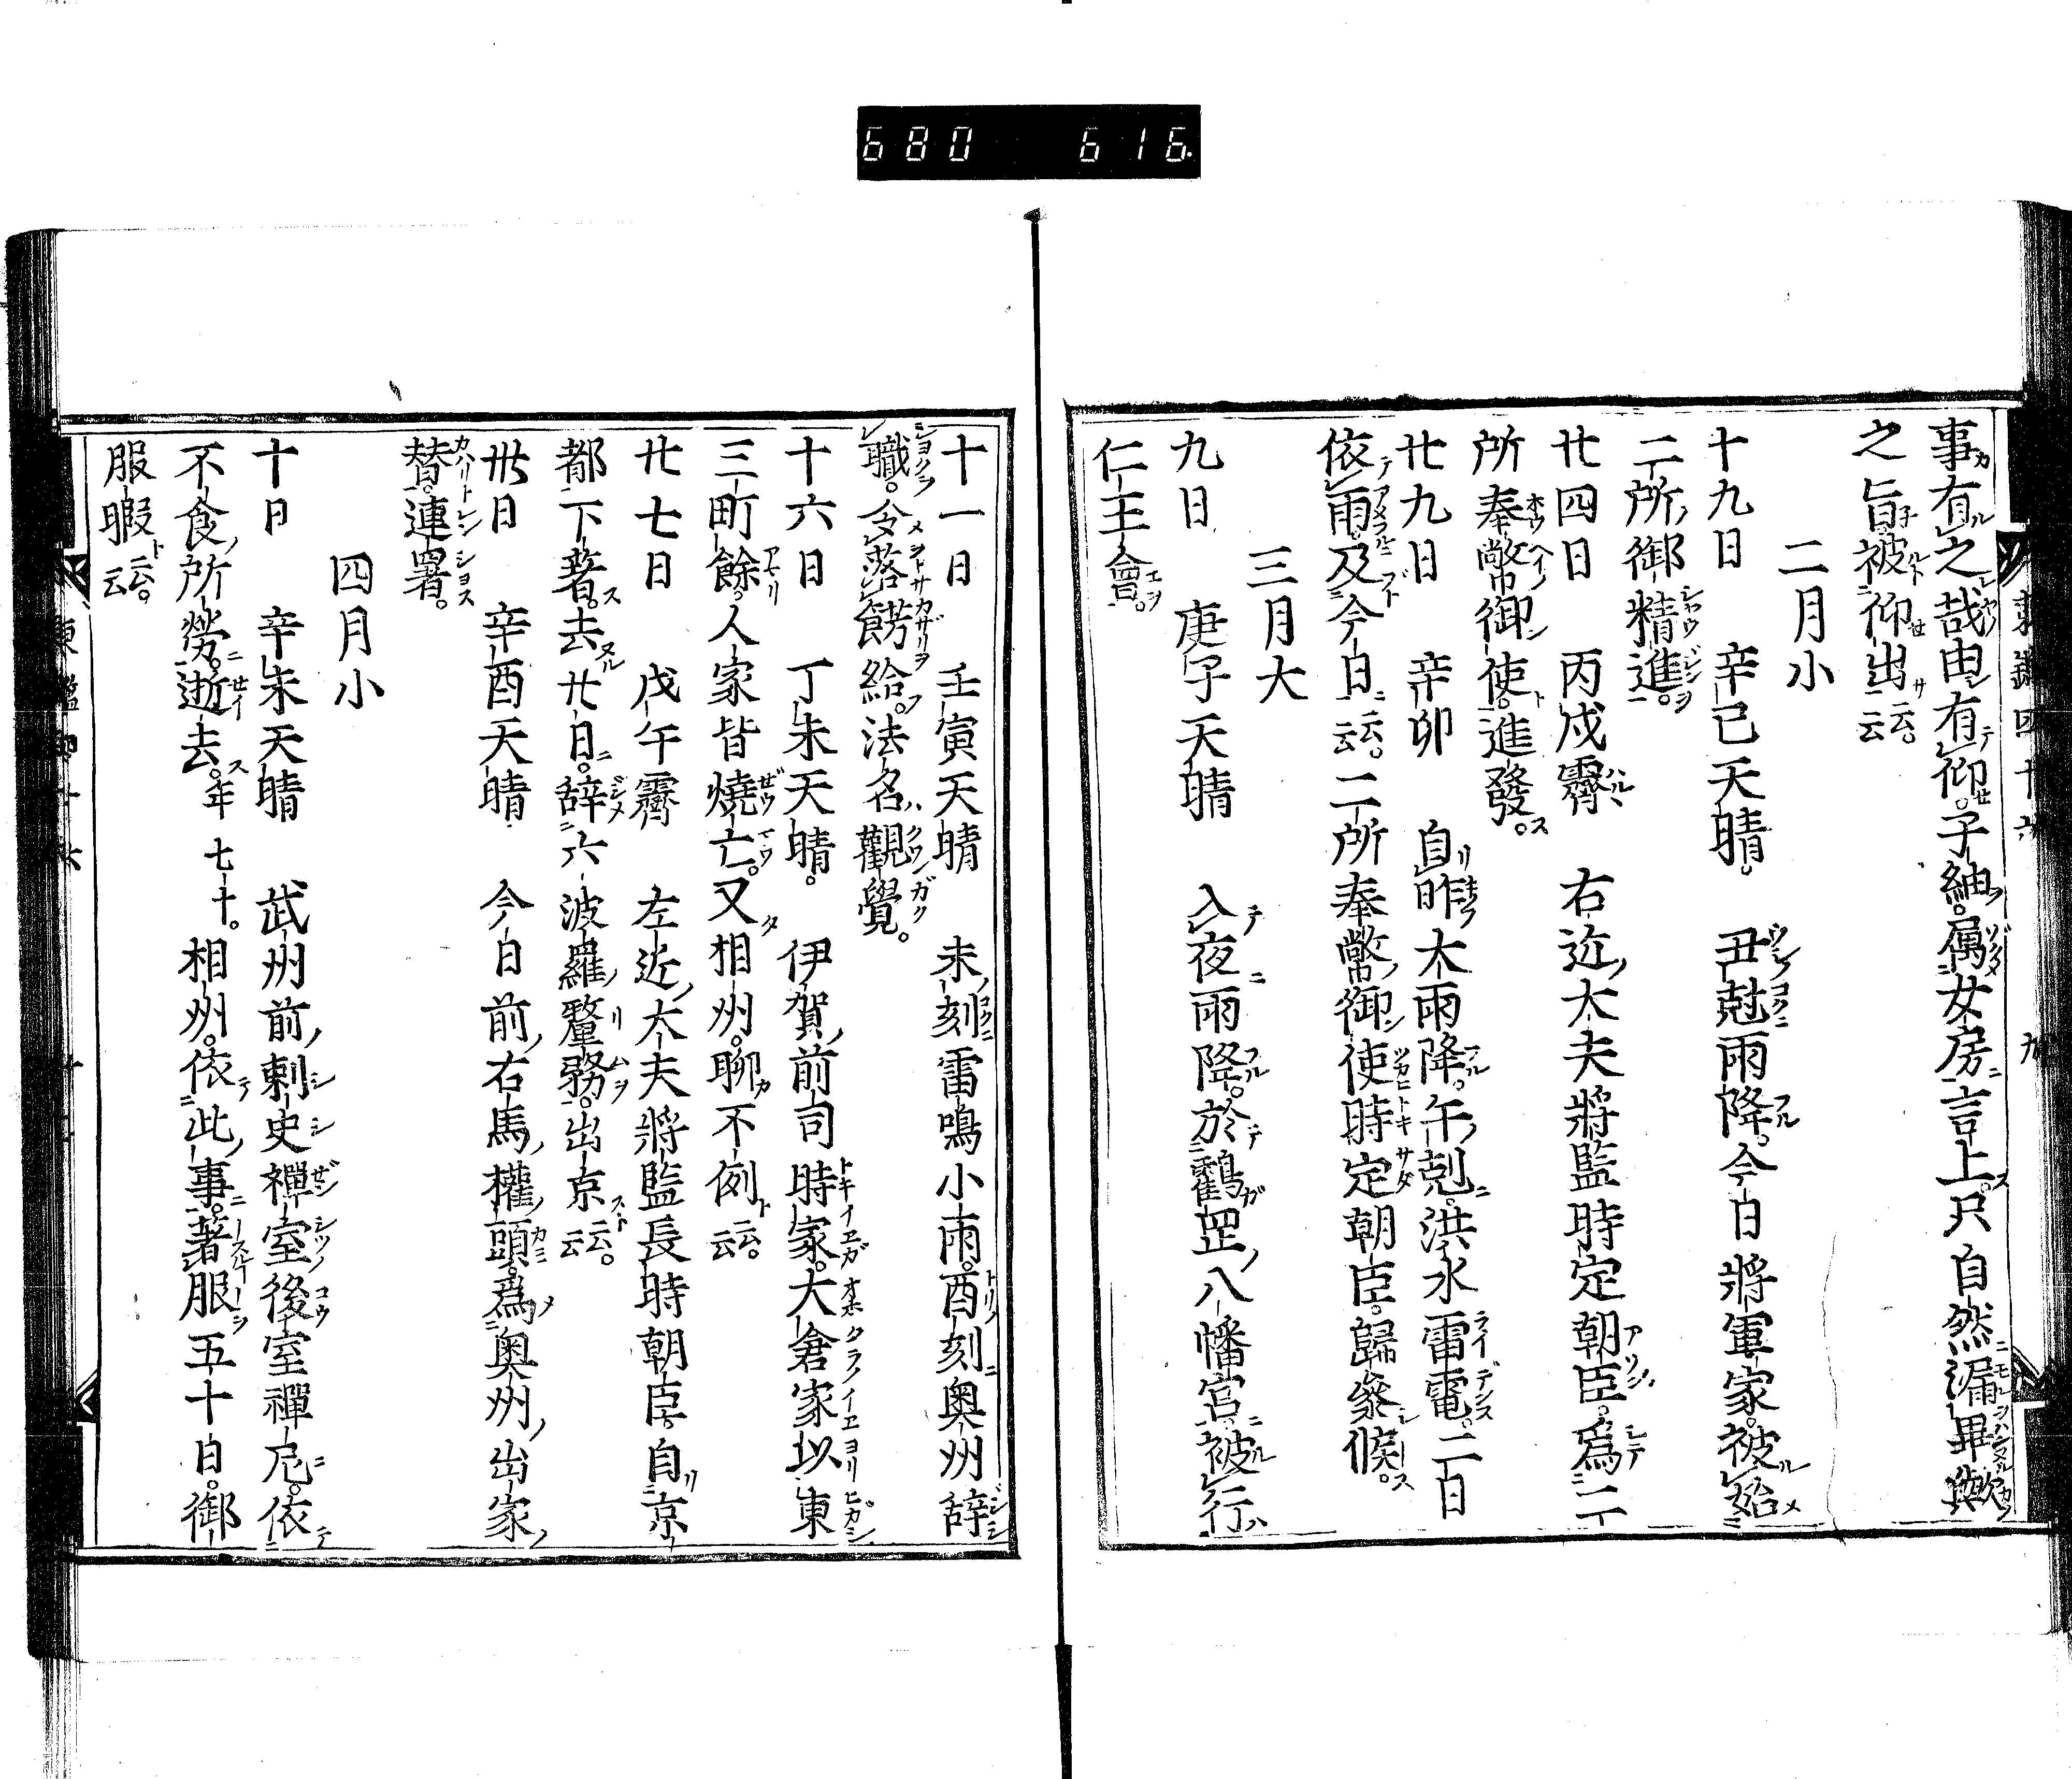 680 616
事有之哉由有仰子細属女房言上只自然漏畢歟
之旨被仰出云云
二月小
十九日 辛巳天晴 丑尅雨降今日將軍家被始
二所御精進
廿四日 丙戌霽 右近大夫將監時定朝臣爲二
所奉幣御使進發
廿九日 辛卯 自昨大雨降午尅洪水雷電二日
依雨及今日云云二所奉幣御使時定朝臣歸參候
三月大
九日 庚子天晴 入夜雨降於鶴岡八幡宮被行
仁王會
十一日 壬寅天晴 未刻雷鳴小雨酉刻奥州辞
職令落餝給法名觀覺
十六日 丁未天晴 伊賀前司時家大倉家以東
三町餘人家皆燒亡又相州聊不例云云
廿七日 戊午霽 左近大夫將監長時朝臣自京
都下著去廿日辞六波羅釐務出京云云
卅日 辛酉天晴 今日前右馬權頭爲奥州出家
替連署
四月小
十日 辛未天晴 武州前刺史禪室後室禪尼依
不食所勞逝去年七十相州依此事著服五十日御
服暇云云